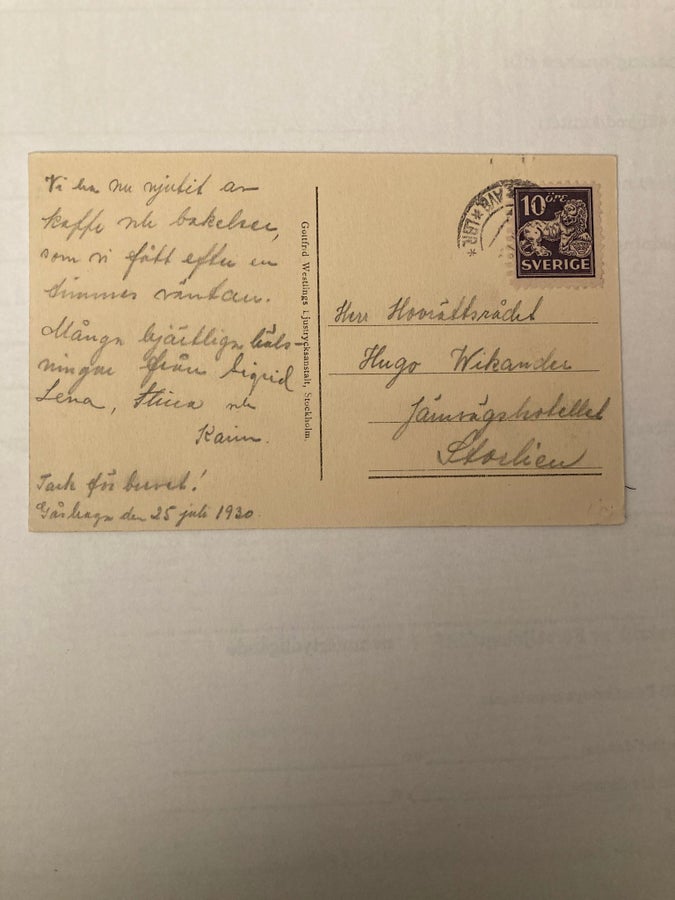 Vi ha nu njutit av
kaffe och bakelser,
som vi fått efter en
timmes väntan.
Många hjärtliga häls-
ningar från Sigrid
Lena, Stina och
Karin.
Tack för brevet!
Gåshaga den 25 juli 1930.
Gottfrid Westlings Ljustrycksanstalt, Stockholm.
AVG*LBR*
10 ÖRE
SVERIGE
Herr Hovrättsrådet
Hugo Wikander
Järnvägshotellet
Storlien